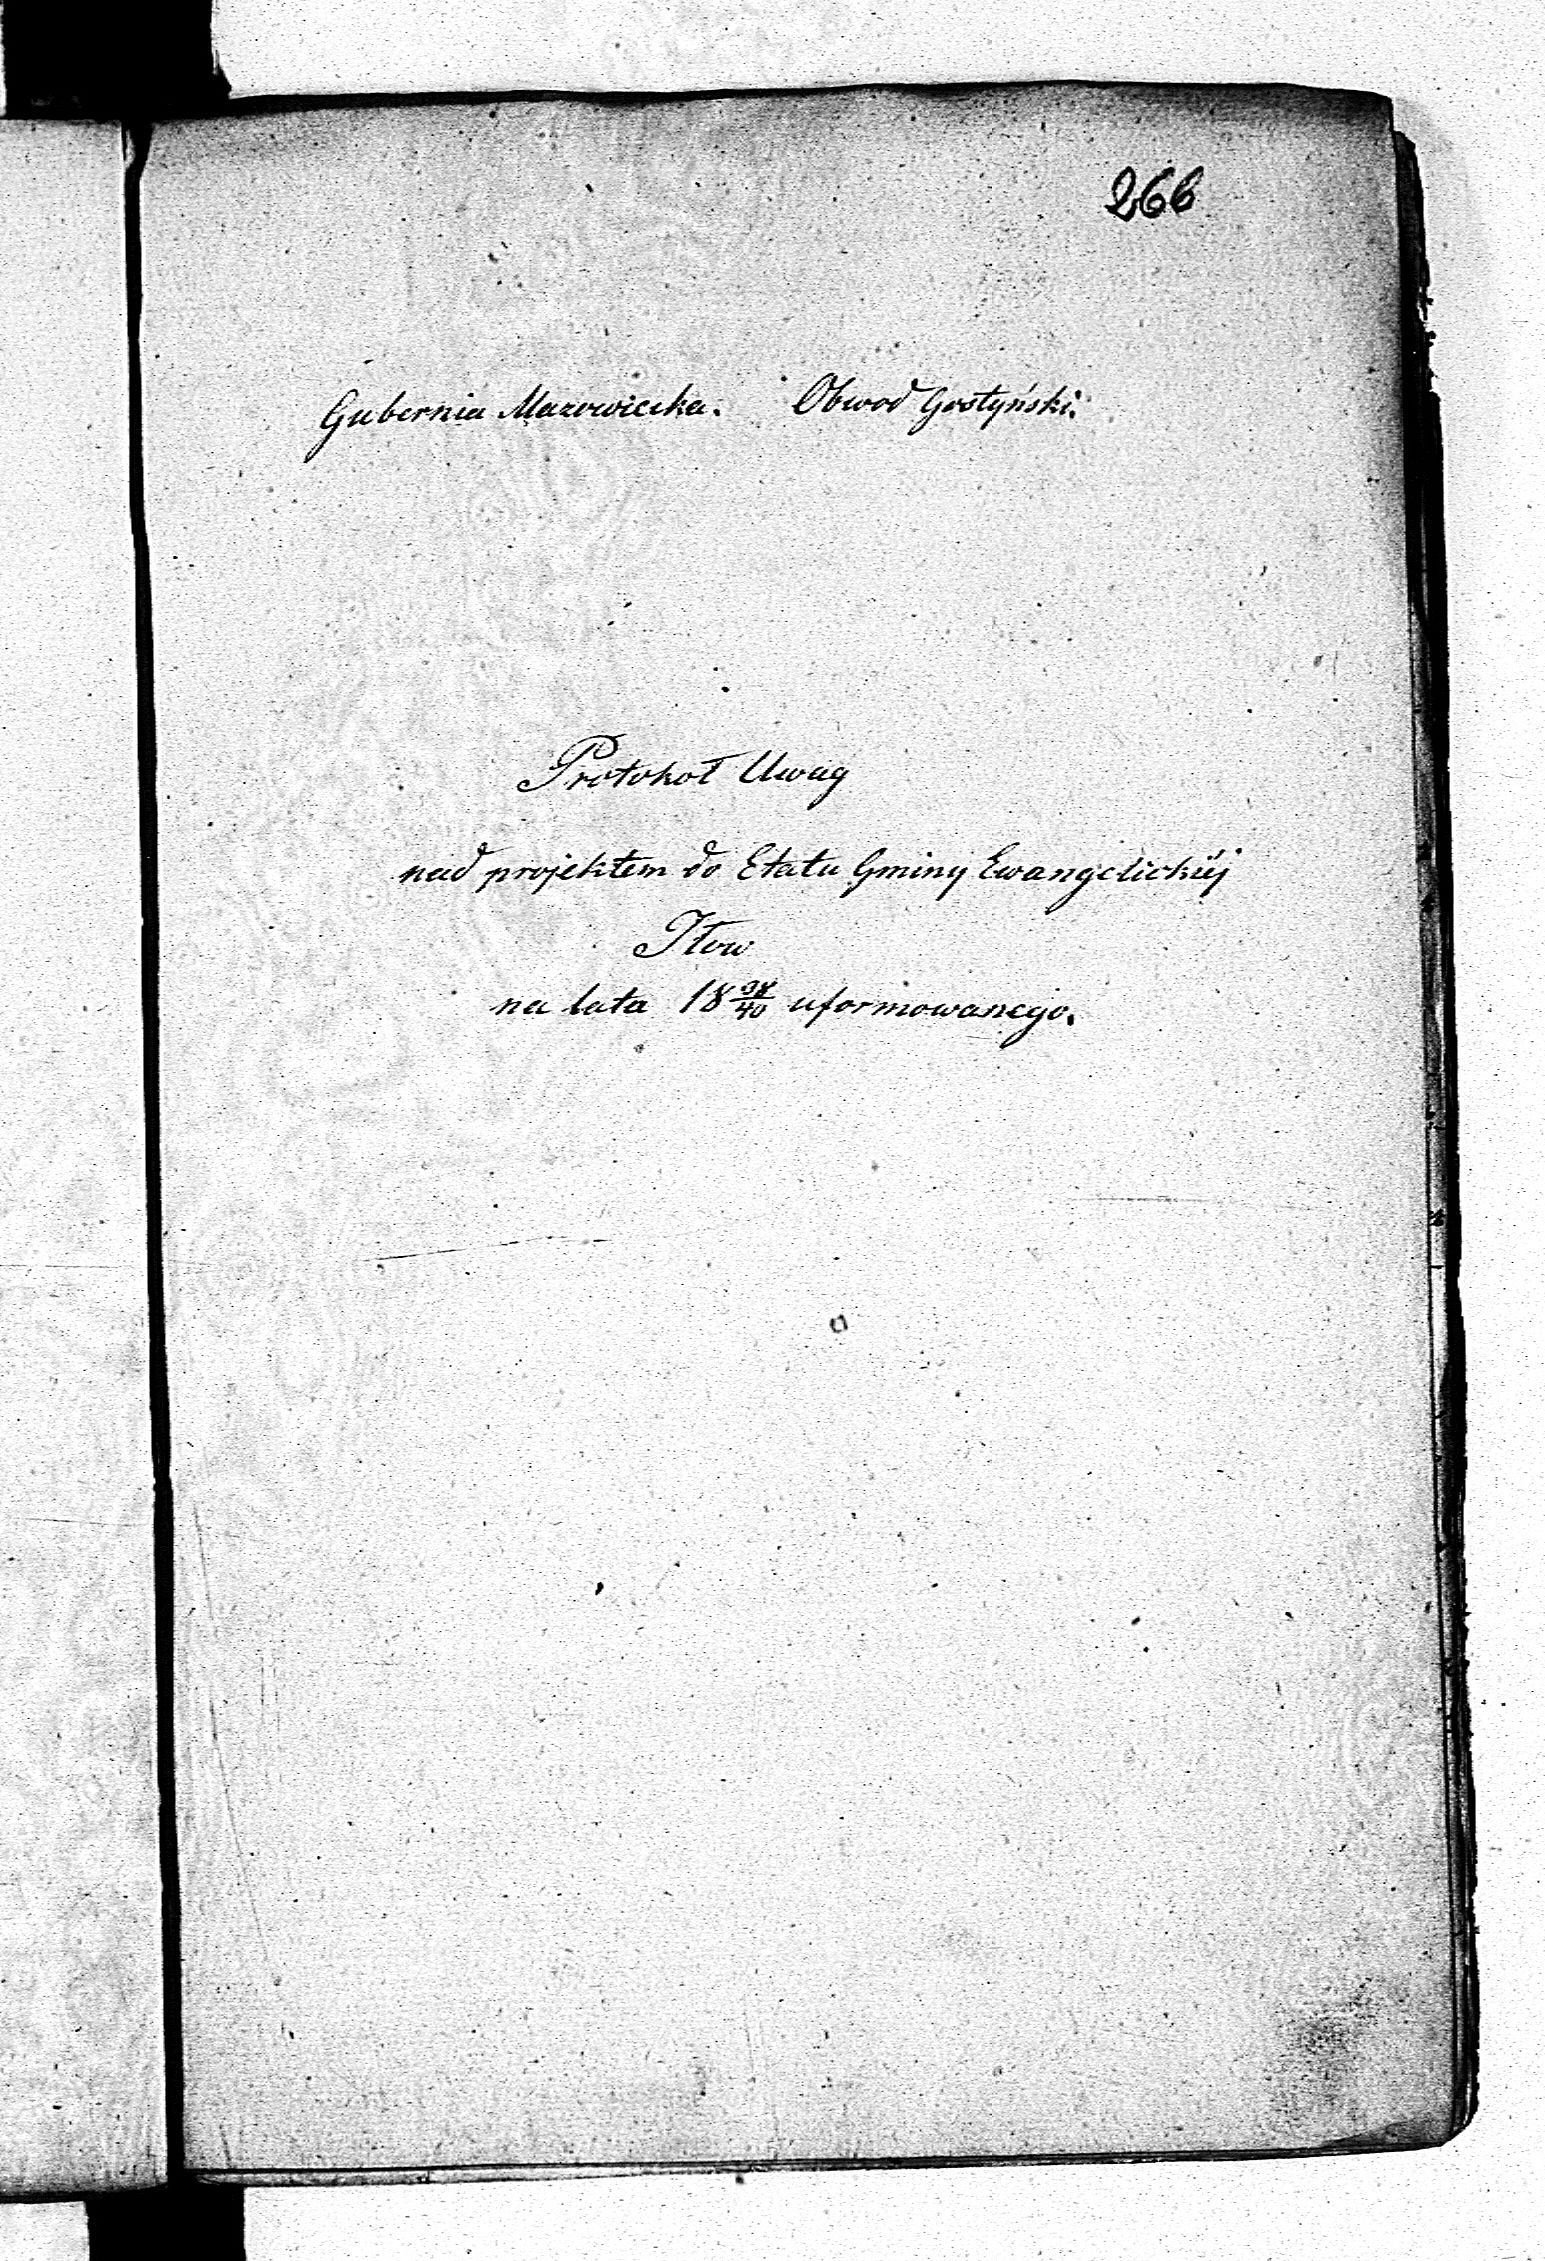 266
Gubernia Mazowiecka. Obwod Gostyński.
Protokoł Uwag
nad projektem do Etatu Gminy Ewangelickiéj
Iłow
na lata 18 38/40 uformowanego.